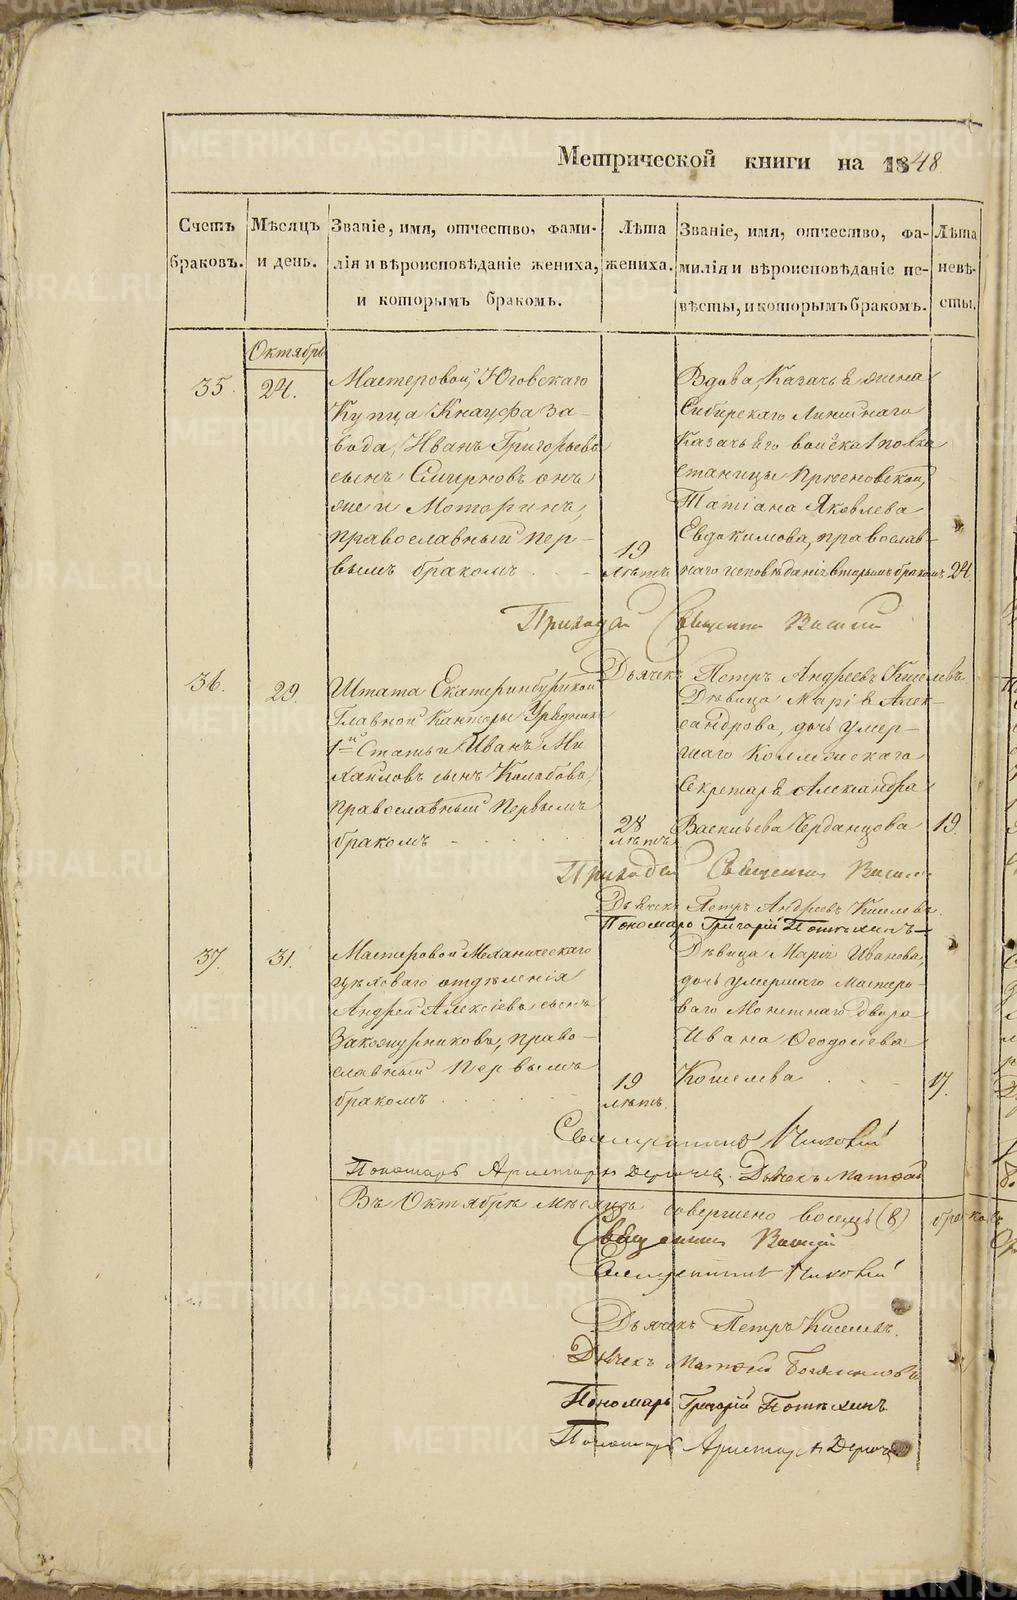 Метрической книги на 1848
Счетъ браковъ.
Мѣсяцъ и день.
Званіе, имя, отчество, фами-
лія и вѣроисповѣданіе жениха,
и которымъ бракомъ.
Лѣта жениха.
Званіе, имя, отчество, фа-
милія и вѣроисповѣданіе не-
вѣсты, и которымъ бракомъ.
Лѣта невѣ-
сты.
Октябрь
35. 24.
Мастеровой Юговскаго
Купца Кнауфа За-
вода, Иванъ Григорьевъ
сынъ Смирновъ онъ
же и Моторинъ,
православный пер-
вымъ бракомъ
19
лѣтъ
Вдова, Казачья жена
Сибирскаго Линѣйнаго
Казачьяго войска 1 полка
станицы Прѣсновской,
Татіана Яковлева
Евдокимова, православ-
наго исповѣданія вторымъ бракомъ
24.
Приходской Священникъ Василій
Дьячекъ Петръ Андреевъ Киселевъ
36. 29.
Штата Екатеринбургской
Главной Канторы Урядникъ
1й Статьи Иванъ Ми
хайловъ сынъ Колобовъ,
православный Первымъ
бракомъ
28
лѣтъ
Дѣвица Марія Алек-
сандрова, дочь умер-
шаго Коллежскаго
Секретаря Александра
Васильева Черданцова
19.
Приходской Священникъ Василій
Дьячекъ Петръ Андреевъ Киселевъ.
Пономарь Григорій Потѣхинъ
37. 31.
Мастеровой Механическаго
цѣховаго отдѣленія
Андрей Алексѣевъ сынъ
Закожурниковъ, право-
славный Первымъ
бракомъ
19
лѣтъ.
Дѣвица Марія Иванова,
дочь умершаго Мастеро-
ваго Монетнаго двора
Ивана Ѳеодосіева
Кошелева
17.
Священникъ
Пономарь Аристархъ Дьячекъ Матѳей
Въ Октябрѣ мѣсяцѣ совершено восемь (8) браковъ
Священникъ Василій
Священникъ
Дьячекъ Петръ Киселевъ.
Дьячекъ Матѳей
Пономарь Григорій Потѣхинъ
Пономарь Аристархъ
METRIKI.GASO-URAL.RU